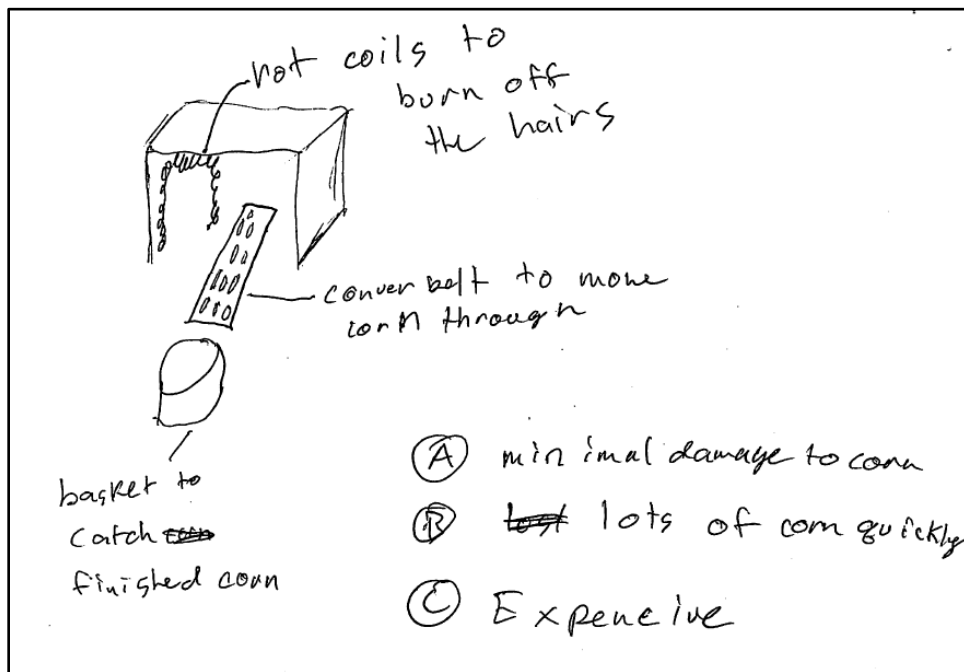 hot coils to
burn off
the hairs
conver belt to move
corn through
basket to
catch
finished corn
A minimal damage to corn
B lots of corn quickly
C Expencive